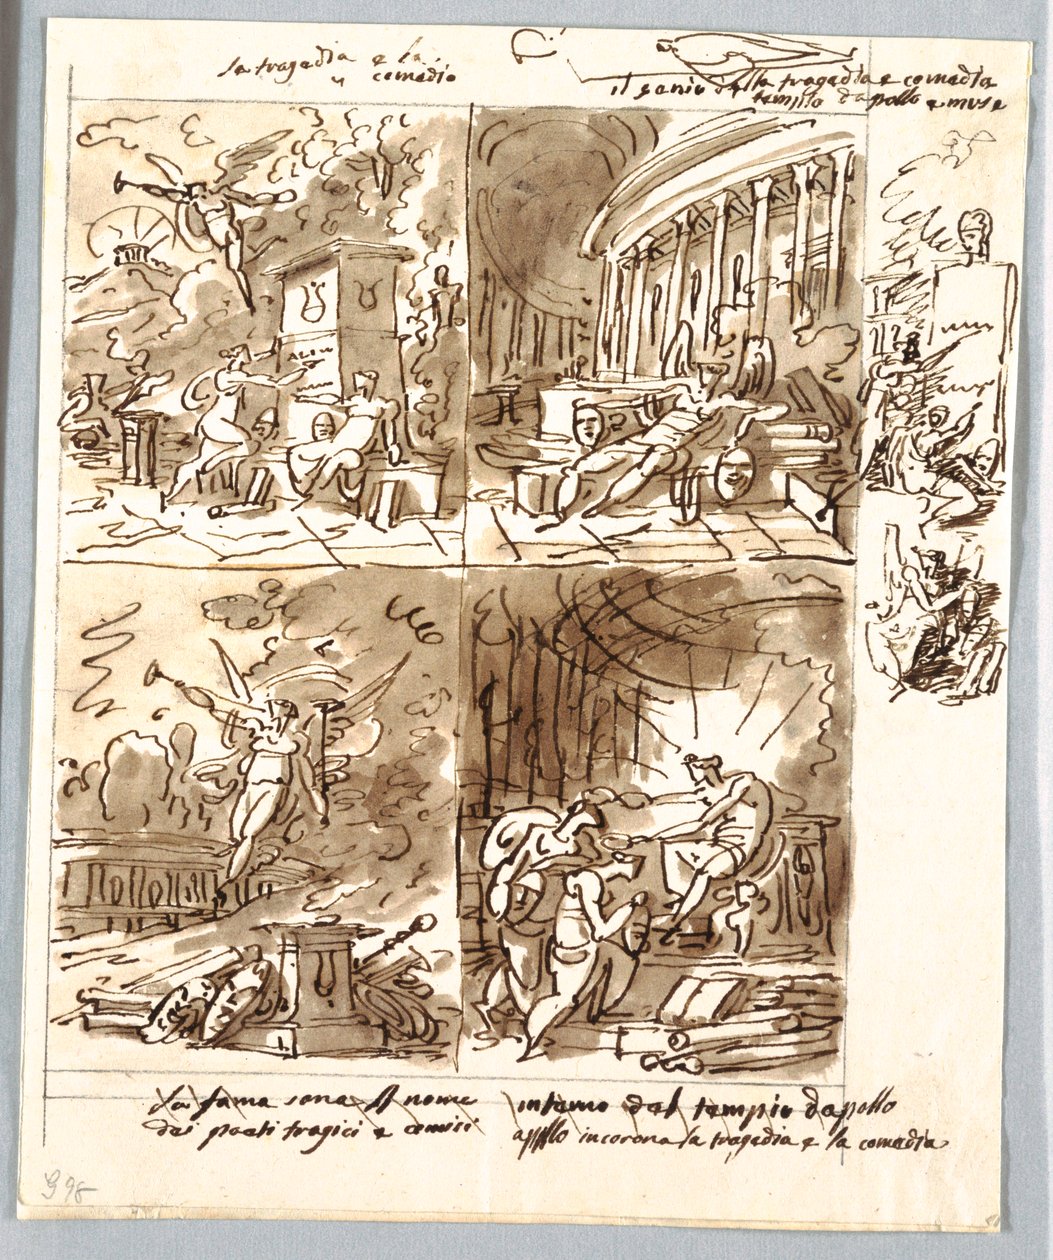 la tragedia e la
comedia
il genio della tragedia e comedia
tempio dapollo e muse
la fama sona il nome
dei poeti tragici e comici
interno del tempio dapollo
apollo incorona la tragedia e la comedia
G 98